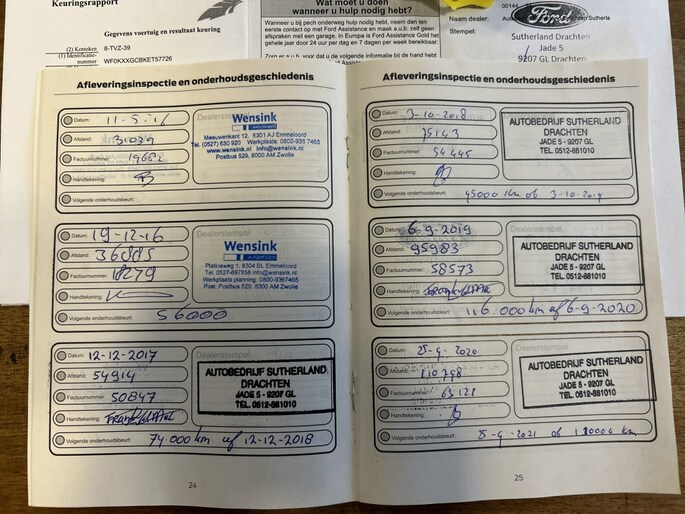 Keuringsrapport
Gegevens voertuig en resultaat keuring
(2) Kenteken 8-TVZ-39
(1) Identificatie-
nummer WF0KXXGCBKET57726
Wat moet u doen
wanneer u hulp nodig hebt?
Wanneer u bij pech onderweg hulp nodig hebt, neem dan ten
eerste contact op met Ford Assistance en maak a.u.b. zelf geen
afspraken met een garage. In Europa is Ford Assistance Gold het
gehele jaar door 24 uur per dag en 7 dagen per week bereikbaar!
Zorg er a.u.b. voor dat u de volgende informatie bij de hand hebt
00144
Naam dealer:
Stempel:
Ford
Sutherland Drachten
Jade 5
9207 GL Drachten
Afleveringsinspectie en onderhoudsgeschiedenis
Datum: 11-5-16
Afstand:
Factuurnummer:
Handtekening:
Volgende onderhoudsbeurt:
Dealerstempel
Wensink
Meeuwenkant 12, 8301 AJ Emmeloord
Tel. (0527) 630 920 Werkplaats: 0800-936 7465
www.wensink.nl info@wensink.nl
Postbus 529, 8000 AM Zwolle
Datum: 19-12-16
Afstand:
Factuurnummer: 18279
Handtekening:
Volgende onderhoudsbeurt: 56000
Dealerstempel
Wensink
Platineweg 1, 8304 BL Emmeloord
Tel. 0527-697858 info@wensink.nl
Werkplaats planning: 0800-9367465
Post: Postbus 529, 8000 AM Zwolle
Datum: 12-12-2017
Afstand: 54914
Factuurnummer: 50847
Handtekening:
Volgende onderhoudsbeurt: 74 000 km of 12-12-2018
AUTOBEDRIJF SUTHERLAND
DRACHTEN
JADE 5 - 9207 GL
TEL. 0512-581010
24
Afleveringsinspectie en onderhoudsgeschiedenis
Datum: 3-10-2018
Afstand: 75143
Factuurnummer: 54445
Handtekening:
Volgende onderhoudsbeurt: 95000 km of 3-10-2019
AUTOBEDRIJF SUTHERLAND
DRACHTEN
JADE 5 - 9207 GL
TEL. 0512-581010
Datum: 6-9-2019
Afstand: 95983
Factuurnummer: 58573
Handtekening:
Volgende onderhoudsbeurt: 116 000 km of 6-9-2020
AUTOBEDRIJF SUTHERLAND
DRACHTEN
JADE 5 - 9207 GL
TEL. 0512-581010
Datum: 25-9-2020
Afstand: 110798
Factuurnummer: 63121
Handtekening:
Volgende onderhoudsbeurt: 25-9-2021 of 130000 km
AUTOBEDRIJF SUTHERLAND
DRACHTEN
JADE 5 - 9207 GL
TEL. 0512-581010
25